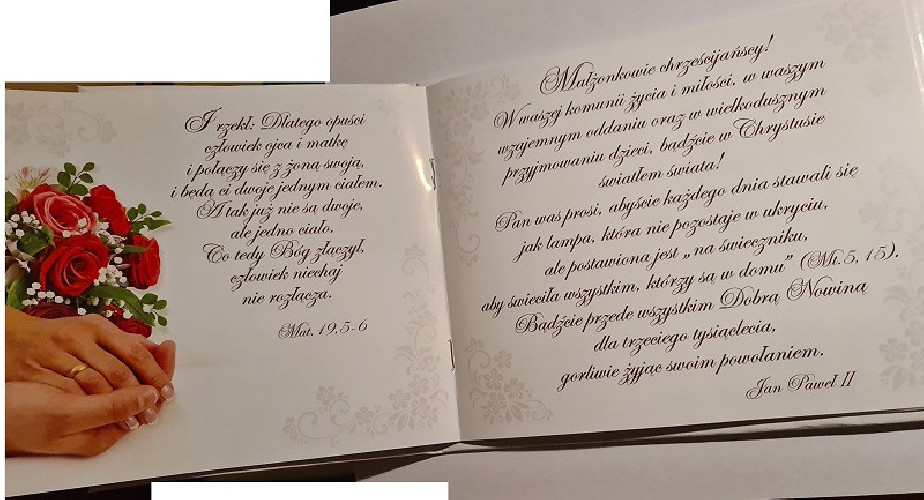 I rzekł: Dlatego opuści
człowiek ojca i matkę
i połączy się z żoną swoją,
i będą ci dwoje jednym ciałem.
A tak już nie są dwoje,
ale jedno ciało.
Co tedy Bóg złączył,
człowiek niechaj
nie rozłącza.
Mat. 19,5-6
Małżonkowie chrześcijańscy!
W waszej komunii życia i miłości, w waszym
wzajemnym oddaniu oraz w wielkodusznym
przyjmowaniu dzieci, bądźcie w Chrystusie
światłem świata!
Pan was prosi, abyście każdego dnia stawali się
jak lampa, która nie pozostaje w ukryciu,
ale postawiona jest „na świeczniku,
aby świeciła wszystkim, którzy są w domu” (Mt.5, 15).
Bądźcie przede wszystkim Dobrą Nowiną
dla trzeciego tysiąclecia,
gorliwie żyjąc swoim powołaniem.
Jan Paweł II